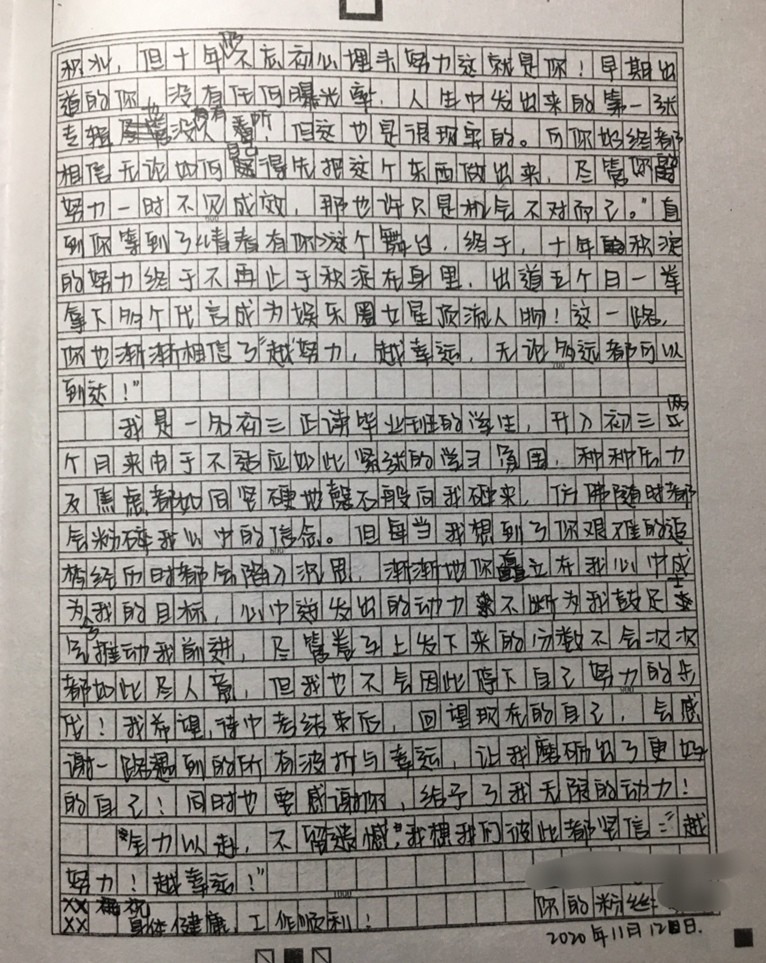 秋冰，但十年仍不忘初心埋头努力这就是你！早期出
道的你也没有任何曝光率，人生中发出来的第一张
专辑没有人看所，但这也是很现实的。而你始终都
相信无论如何自己得先把这个东西做出来，尽管你
努力一时不见成效，那也许只是机会不对而已。"直
到你等到了《青春有你》这个舞台，终于，十年的积淀
的努力终于不再止于积淀在身里，出道五个月一举
拿下多个代言成为娱乐圈女星顶流人物！这一路，
你也渐渐相信了"越努力，越幸运，无论多远都可以
到达！"
我是一名初三正读毕业班的学生，升入初三两
个月来由于不适应如此紧张的学习氛围，种种压力
及焦虑都如同坚硬地磐石般向我砸来，仿佛随时都
会粉碎我心中的信念。但每当我想到了你艰难的追
梦经历时都会陷入沉思，渐渐地你矗立在我心中成
为我的目标，心中迸发出的动力不断为我鼓足士
气推动我前进，尽管卷子上发下来的分数不会次次
都如此尽人意，但我也不会因此停下自己努力的步
伐！我希望，待中考结束后，回望现在的自己，会感
谢一路遇到的所有波折与幸运，让我磨砺出了更好
的自己！同时也要感谢你，给予了我无限的动力！
"全力以赴，不留遗憾"，我想我们彼此都坚信："越
努力！越幸运！"
XX 祝
XX 身体健康，工作顺利！ 你的粉丝
2020年11月12日.